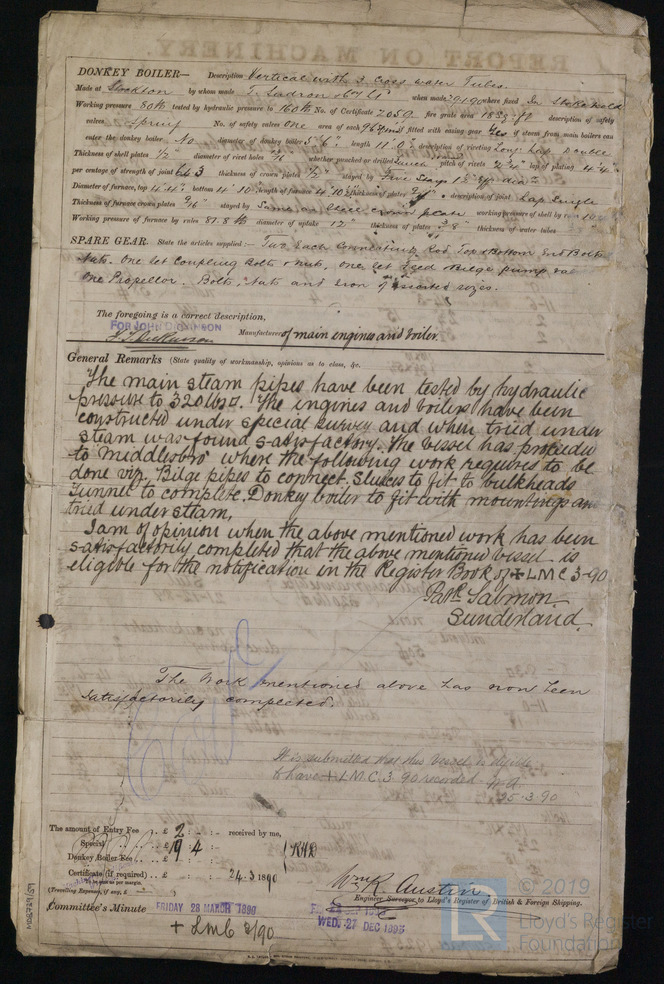 DONKEY BOILER— Description Vertical with 3 Cross water Tubes
Made at Stockton by whom made when made 9.1.90 where fixed In Stokehold
Working pressure 80 lb tested by hydraulic pressure to 160 lb No. of Certificate 2059 fire grate area description of safety
valves Spring No. of safety valves One area of each fitted with easing gear Yes if steam from main boilers can
enter the donkey boiler No diameter of donkey boiler 5'6" length 11.0 description of riveting Long: Lap Double
Thickness of shell plates diameter of rivet holes whether punched or drilled pitch of rivets lap of plating
per centage of strength of joint thickness of crown plates stayed by Five Stays
Diameter of furnace, top 4'.4" bottom 4' 10" length of furnace thickness of plates description of joint Lap Single
Thickness of furnace crown plates 9/16" stayed by Same as crown plate working pressure of shell by rules
Working pressure of furnace by rules 87.8 lb diameter of uptake 12" thickness of plates 3/8" thickness of water tubes
SPARE GEAR. State the articles supplied:— Two Each Connecting Rod Top & Bottom End Bolts
Nuts. One set Coupling Bolts & Nuts, One set Feed & Bilge pump
One Propeller. Bolts, Nuts and Iron of assorted sizes.
The foregoing is a correct description,
FOR JOHN DICKINSON
Manufacturer of main engines and boiler.
General Remarks (State quality of workmanship, opinions as to class, &c.
The main steam pipes have been tested by hydraulic
pressure to 320 lbs □". The engines and boilers have been
constructed under special survey and when tried under
steam was found satisfactory. The vessel has proceeded
to Middlesbro' where the following work requires to be
done viz. Bilge pipes to connect. Sluices to fit to bulkheads
Tunnel to complete. Donkey boiler to fit with mountings and
tried under steam,
I am of opinion when the above mentioned work has been
satisfactorily completed that the above mentioned vessel is
eligible for the notification in the Register Book of ✠ LMC 3-90
Salmon.
Sunderland.
The Work mentioned above has now been
satisfactorily completed.
It is submitted that this vessel is eligible
to have + LMC. 3 90 recorded
25.3.90
The amount of Entry Fee .. £ 2 : - : - received by me,
Special .. .. £ 19 : 4 : -
Donkey Boiler Fee .. £ : :
Certificate (if required) .. £ : : 24.3 1890
(Travelling Expenses, if any, £ )
Wm. R. Austin
Engineer Surveyor to Lloyd's Register of British & Foreign Shipping.
Committee's Minute FRIDAY 28 MARCH 1890
WED. 27 DEC 1893
+ LMC 3/90
© 2019
Lloyd's Register
Foundation